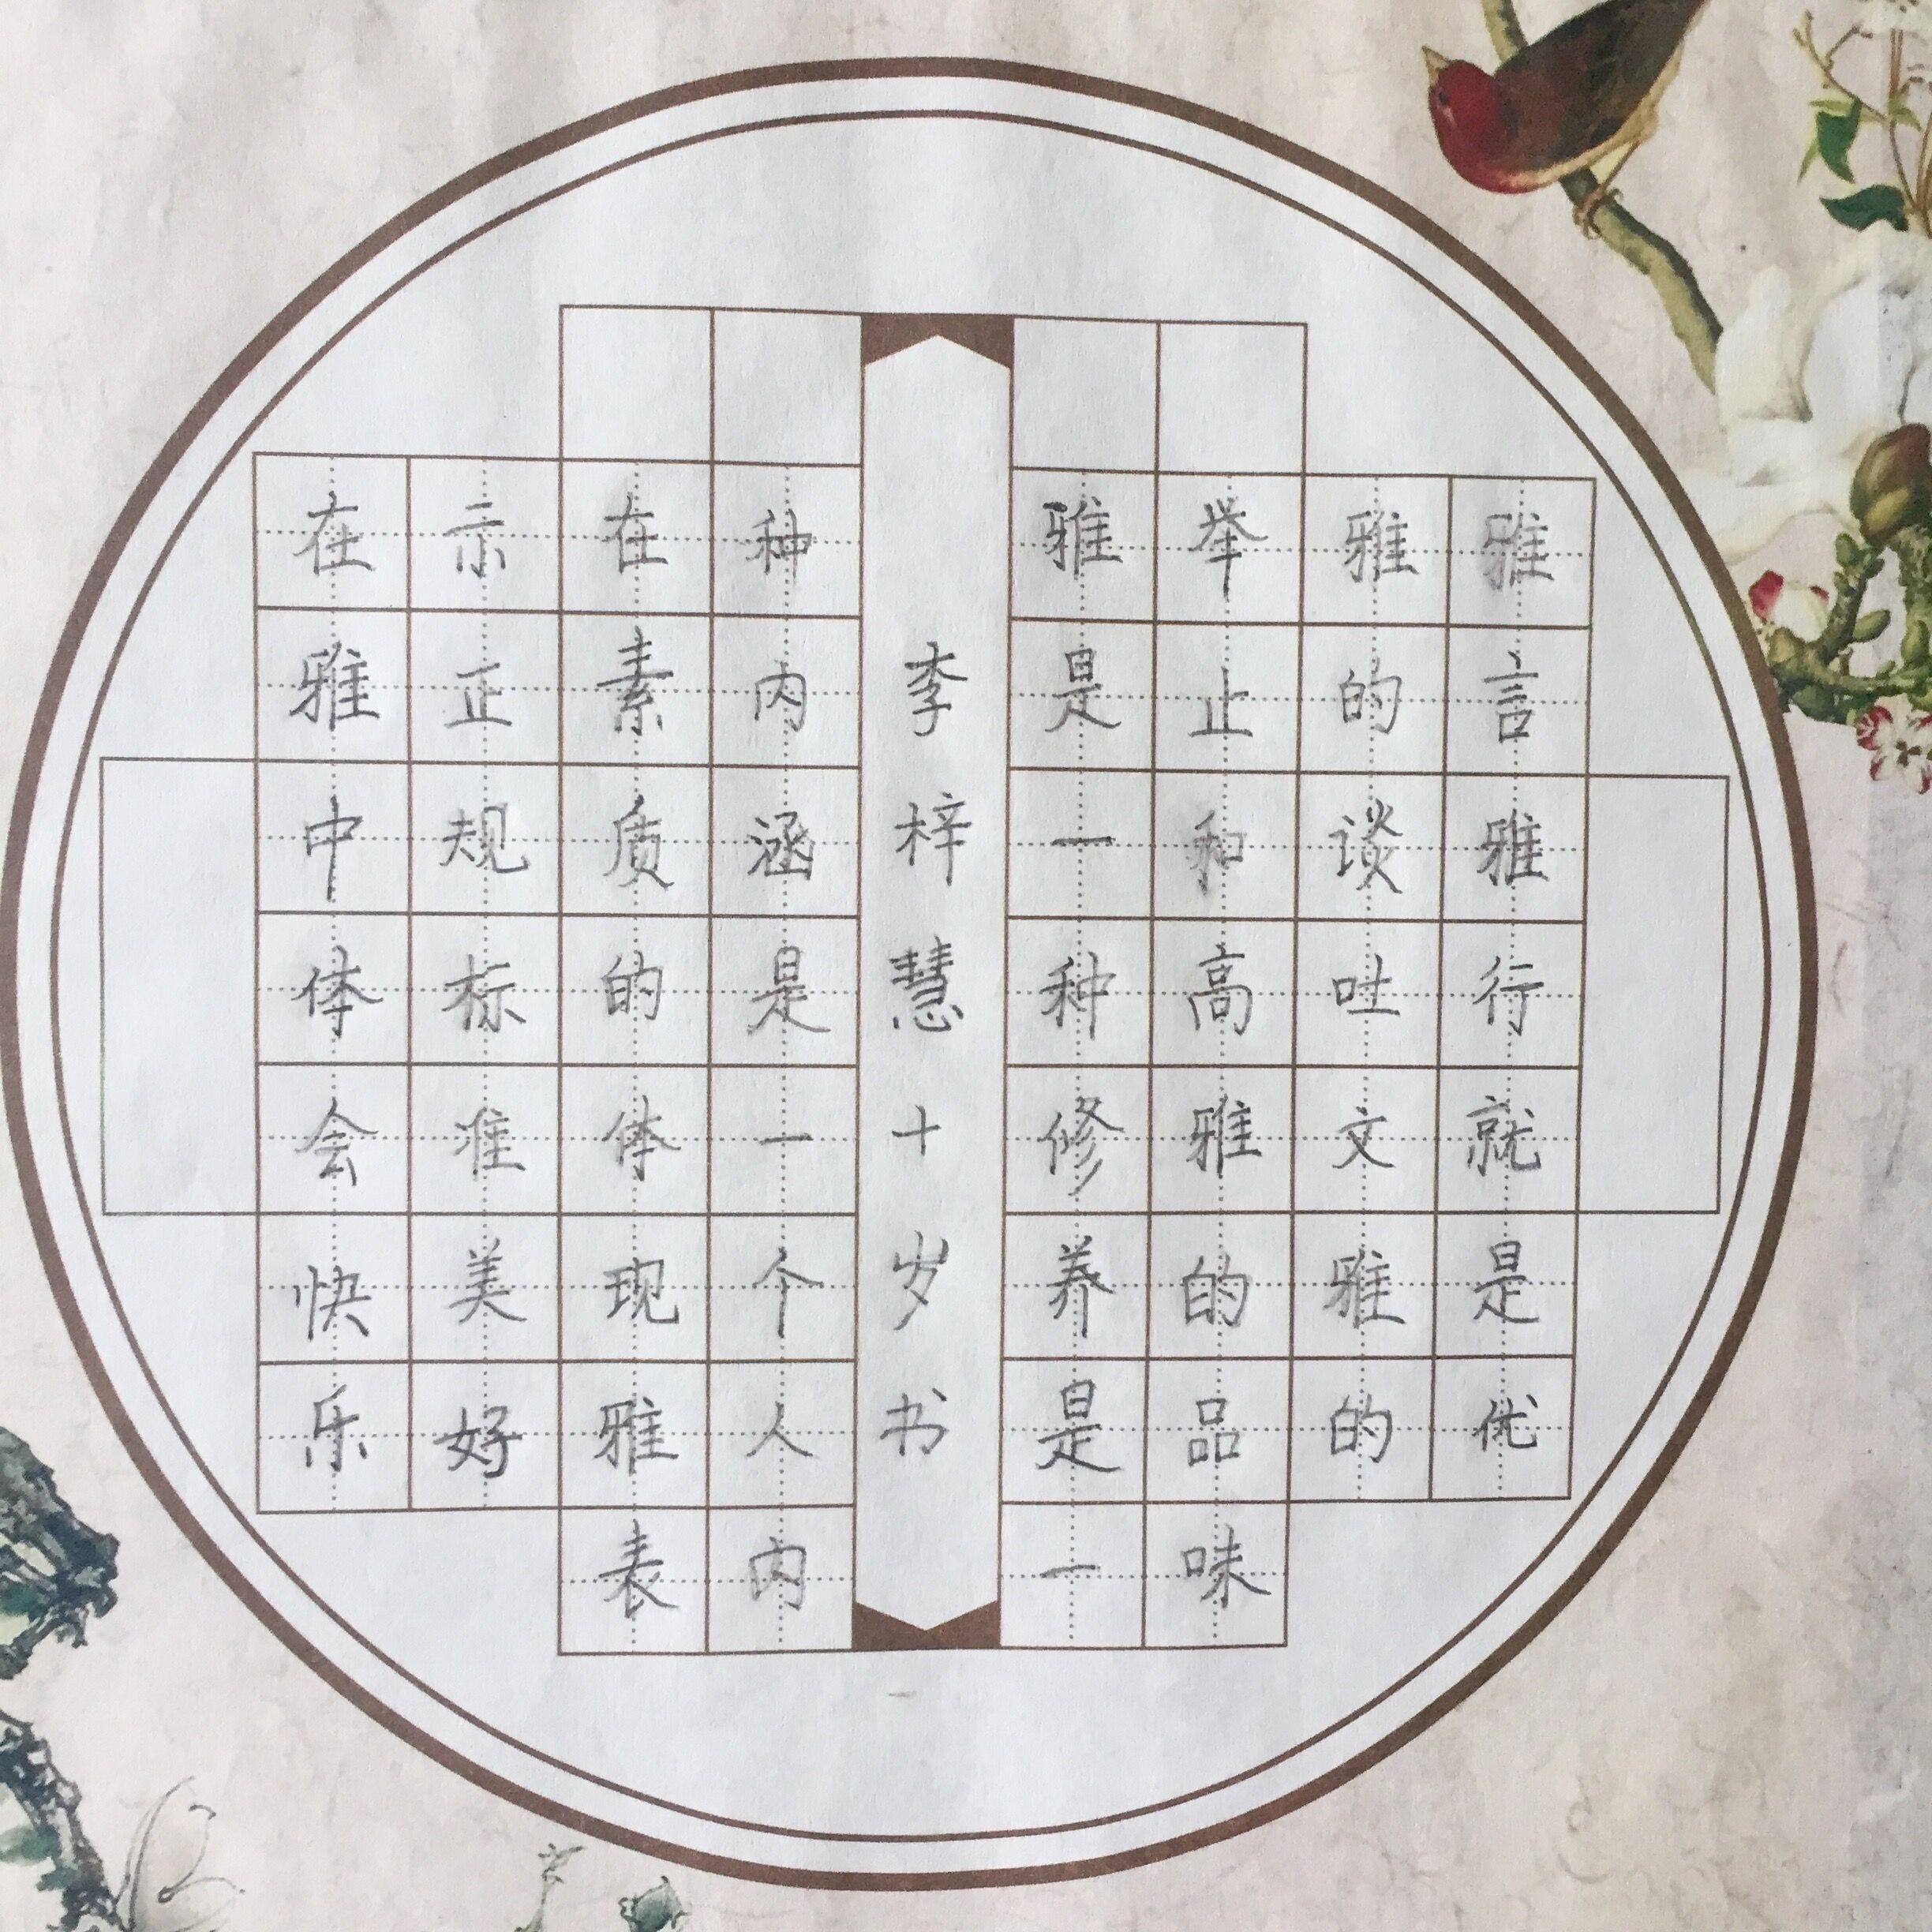 雅言雅行就是优
雅的谈吐文雅的
举止和高雅的品味
雅是一种修养是一
种内涵是一个人内
在素质的体现雅表
示正规标准美好
在雅中体会快乐
李梓慧十岁书